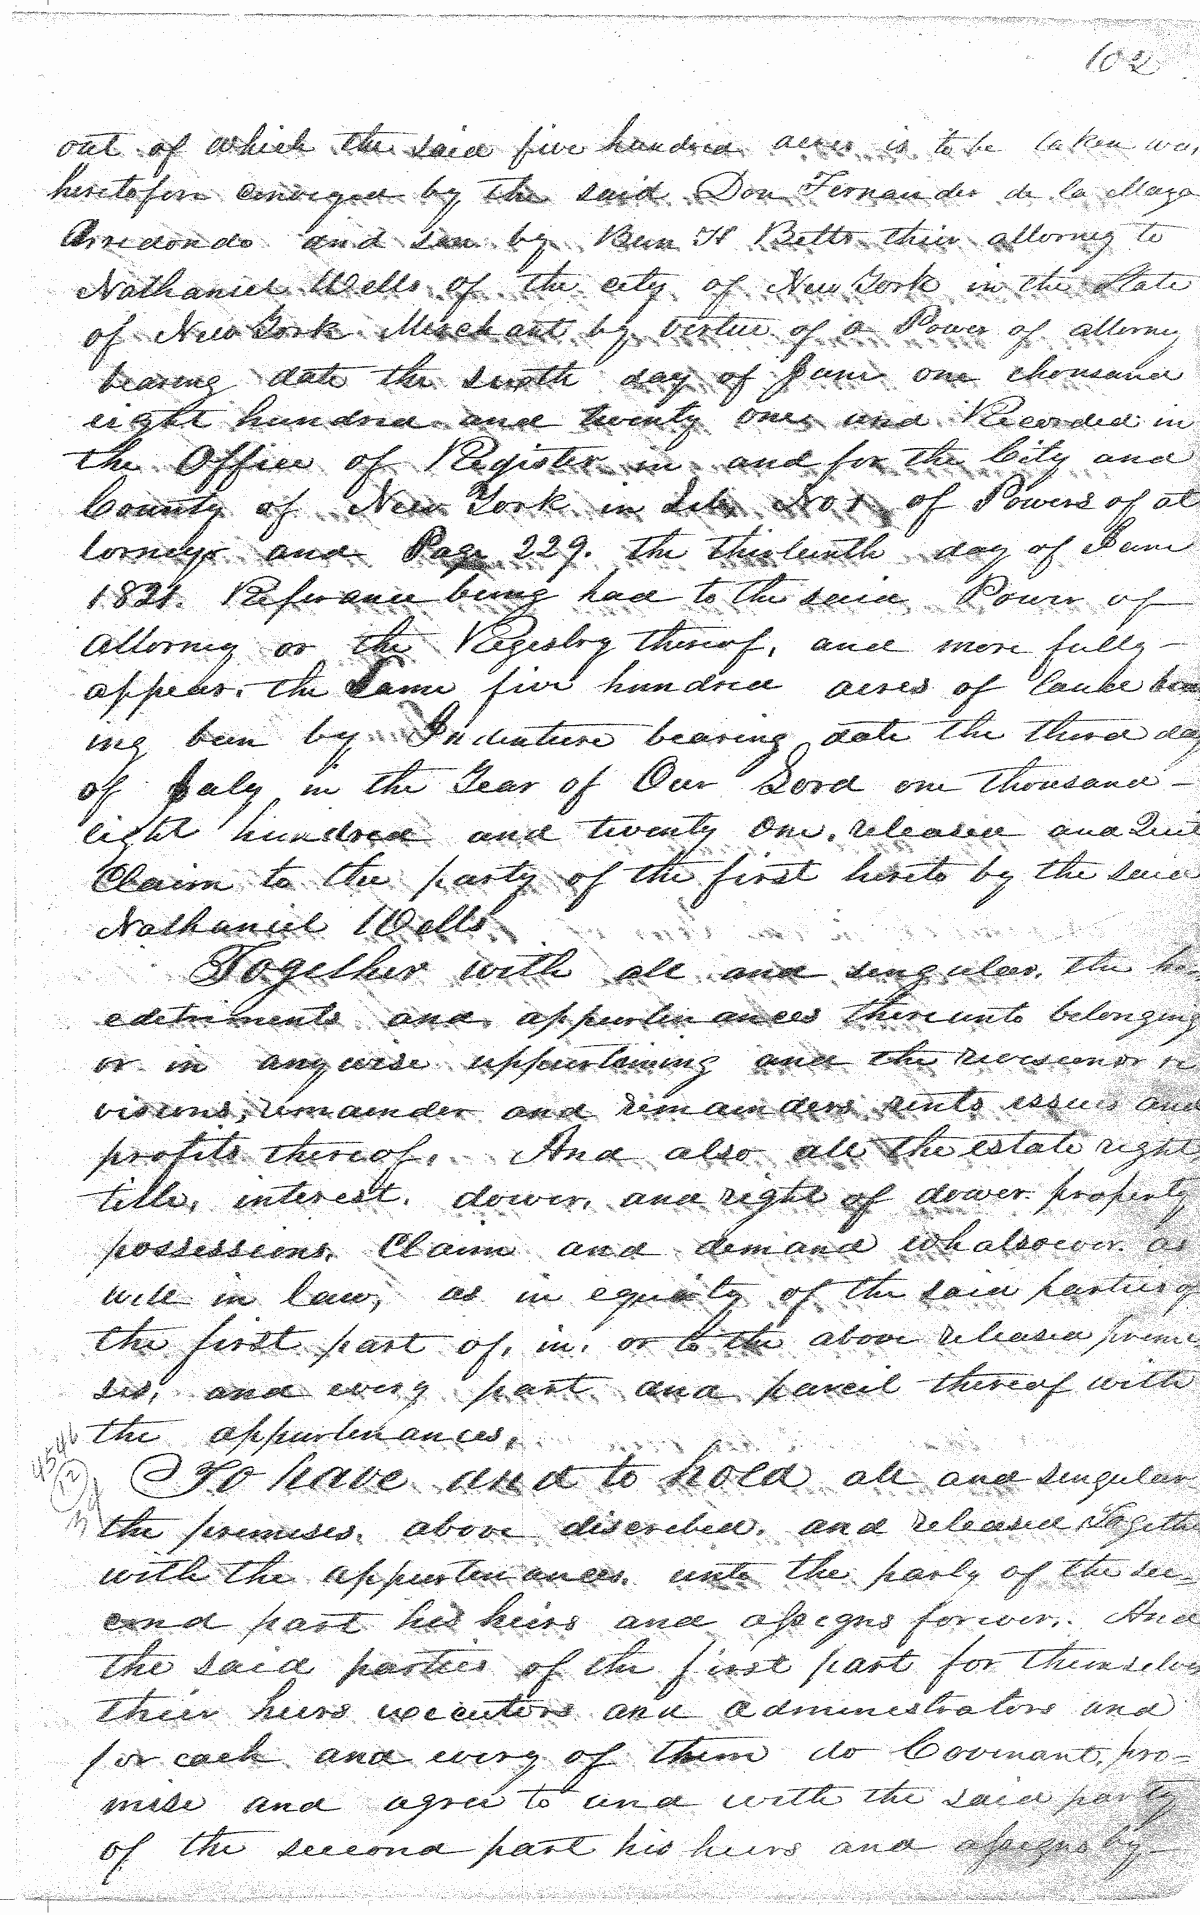 102
out of which the said five hundred acres is to be taken was
heretofore conveyed by the said Don Fernander de la Maza
Arredondo and son by Ben H Betts their attorney to
Nathaniel Wells of the city of New York in the State
of New York Merchant by virtue of a Power of attorney
bearing date the sixth day of June one thousand
eight hundred and twenty one, and Recorded in
the Office of Register in and for the City and
County of New York in Lib. No 1 of Powers of at
torneys and Page 229. the thirteenth day of June
1821. Referance being had to the said Power of
Attorney or the Regestry thereof, and more fully –
appear. the same five hundred acres of land
ing been by Indenture bearing date the third day
of July in the Year of Our Lord one thousand –
eight hundred and twenty One. released and Quit
Claim to the party of the first hereto by the said
Nathaniel Wells.
Together with all and singular. the he-
editiments and appurtenances thereunto belonging
or in anywise appurtaining and the revision or re
visions, remainder and remainders rents issues and
profits thereof. And also all the estate right
title, interest. dower, and right of dower. property
possessions. Claim and demand whatsoever. as
well in law, as in equity of the said parties of
the first part of, in, or to the above released premi
ses, and every part and parcil thereof with
the appurtenances.
4546
12
To have and to hold all and singular
the premises. above discribed. and released Togethe
with the appurtenances. unto the party of the sec-
cond part his heirs and assigns forever. And
the said parties of the first part for themselves
their heirs executors and administrators and
for each and every of them do Covenant, pro-
mise and agree to and with the said party
of the second part his heirs and assigns by –